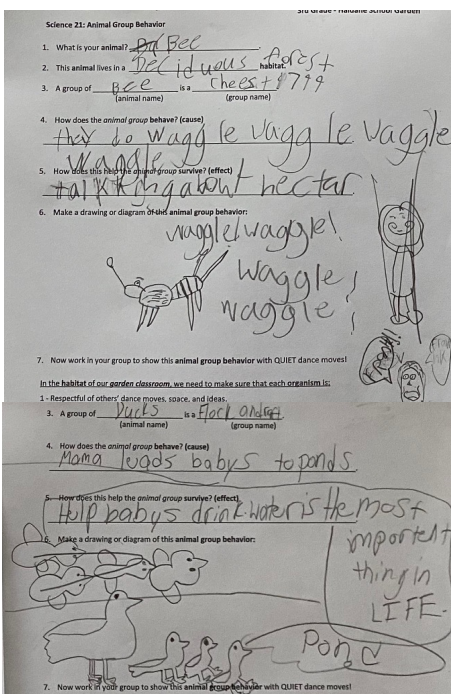 3rd Grade - Haldane School Garden
Science 21: Animal Group Behavior
1. What is your animal? Bee
2. This animal lives in a Deciduous forest habitat.
3. A group of Bee is a
(animal name) (group name)
4. How does the animal group behave? (cause)
they do waggle waggle waggle
waggle
5. How does this help the animal group survive? (effect)
talkking about nectar
6. Make a drawing or diagram of this animal group behavior:
waggle! waggle!
waggle!
waggle!
7. Now work in your group to show this animal group behavior with QUIET dance moves!
In the habitat of our garden classroom, we need to make sure that each organism is:
1 - Respectful of others' dance moves, space, and ideas.
3. A group of Ducks is a Flock
(animal name) (group name)
4. How does the animal group behave? (cause)
Mama leads babys to ponds
5. How does this help the animal group survive? (effect)
Help babys drink. water is the most
importent
thing in
LIFE.
6. Make a drawing or diagram of this animal group behavior:
Pond
7. Now work in your group to show this animal group behavior with QUIET dance moves!